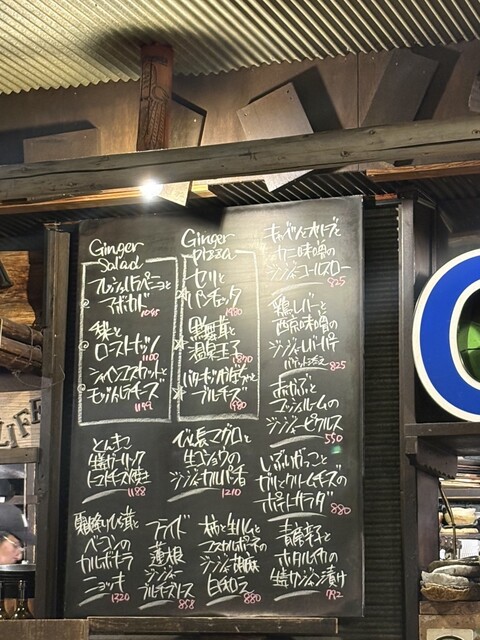 Ginger
Salad
フレッシュハラペーニョと
アボカド
1045
梨と
ローストナッツ
1100
シャインマスカットと
モッツァレラチーズ
1199
Ginger
pizza
セリと
パンチェッタ
黒舞茸と
温泉玉子
1870
バターナッツかぼちゃと
ブルチーズ
1980
キャベツとオリーブと
カニ味噌の
ジンジャーコールスロー
825
鶏レバーと
西京味噌の
ジンジャーレバーパテ
バゲット添え 825
赤かぶと
マッシュルームの
ジンジャーピクルス
550
とんきこ
生姜ガーリック
トマトチーズ焼き
1188
びん長マグロと
生コショウの
ジンジャーカルパッチョ
1210
いぶりがっこと
ガリとクリームチーズの
ポテトサラダ
880
霜降りひら茸と
ベーコンの
カルボナーラ
ニョッキ
1320
フライド
蓮根
ジンジャー
ブルチーズソース
858
柿と生ハムと
マスカルポーネの
ジンジャー胡麻
白和え
880
青唐辛子と
ホタルイカの
生姜ケジャン漬け
792
LIFE